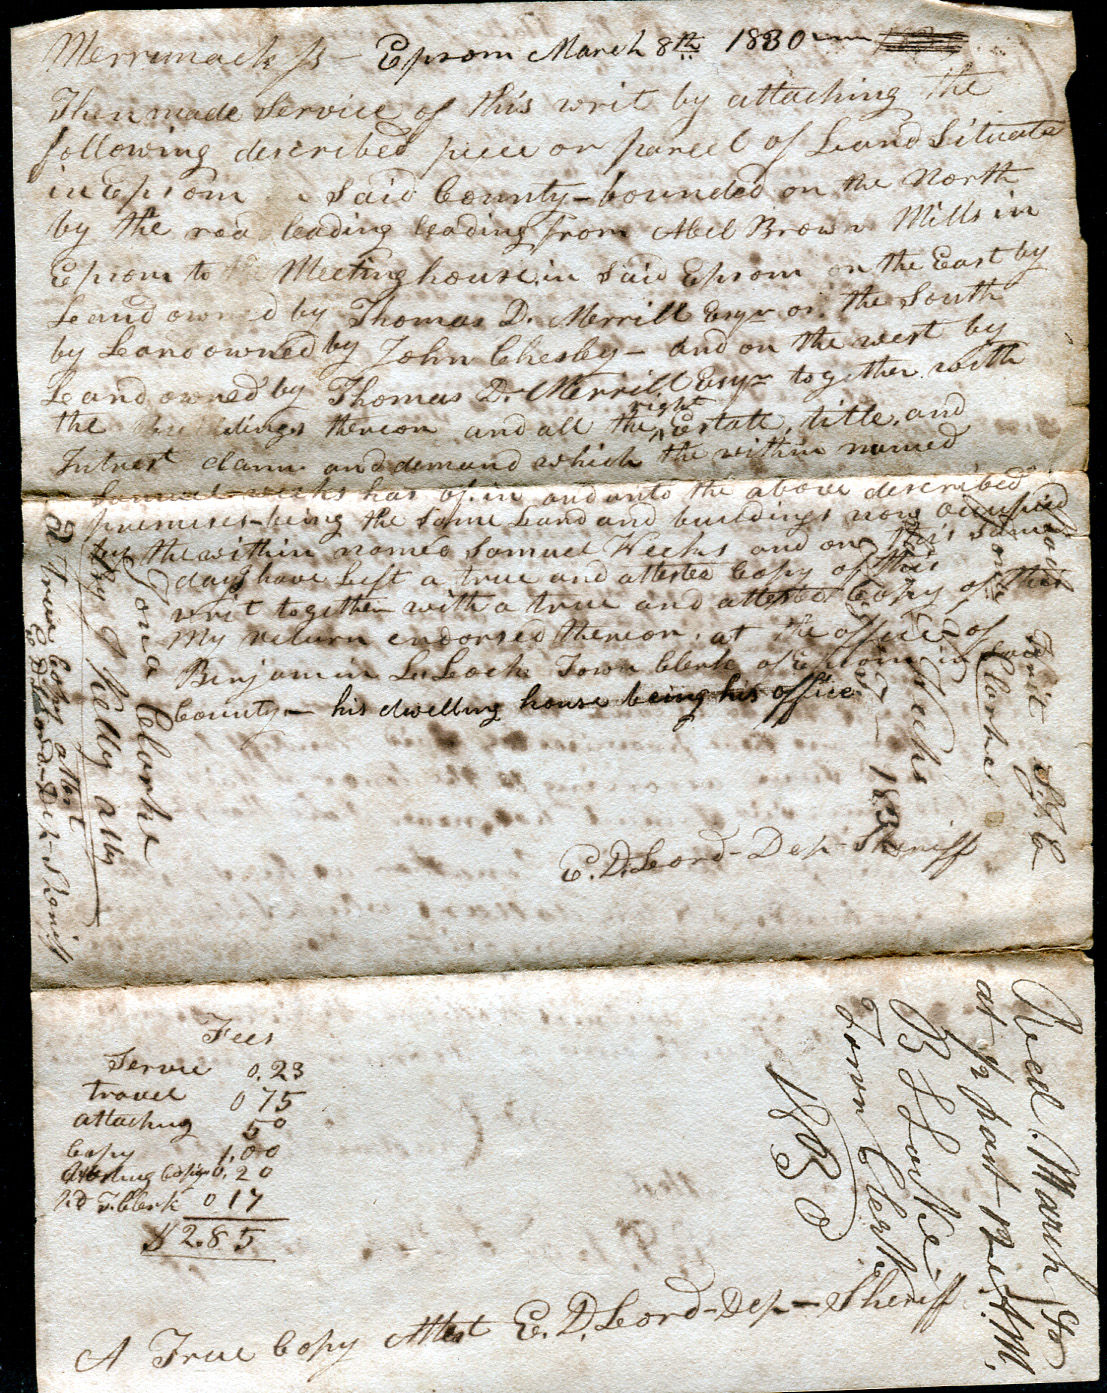 Merrimack ss – Epsom March 8th 1830
Then made Service of this writ by attaching the
following described piece or parcel of Land Situate
in Epsom Said County – bounded on the North
by the road leading leading from Abel Brown Mills in
Epsom to the Meeting house in Said Epsom on the East by
Land owned by Thomas D. Merrill Esqr on the South
by Land owned by John Chesley – and on the west by
Land owned by Thomas D. Merrill Esqr together with
the buildings thereon and all the right Estate, title, and
Intrest claim and demand which the within named
Samuel Weeks has of in and unto the above described
premises – being the Same Land and buildings now occupied
by the within named Samuel Weeks and on this Same
day I have Left a true and attested Copy of this
writ together with a true and attested Copy of
My return endorsed thereon, at the office of
Benjamin L. Lock Town Clerk of Epsom in Said
County – his dwelling house being his office
E. D. Leord – Dep – Sheriff
Jona Clarke
By J Kelly atty
A True Copy attest
E. D. Leord – Dep – Sheriff
Clarke
Weeks
Fees
Servie 0.23
travel 0 75
attaching 50
Copy 1.00
attesting Copy 0.20
pd T. Clerk 0 17
$2.85
A True Copy Attest E. D. Leord – Dep – Sheriff
Recd. March
at past 12 A.M.
B L Locke
Town Clerk
1830